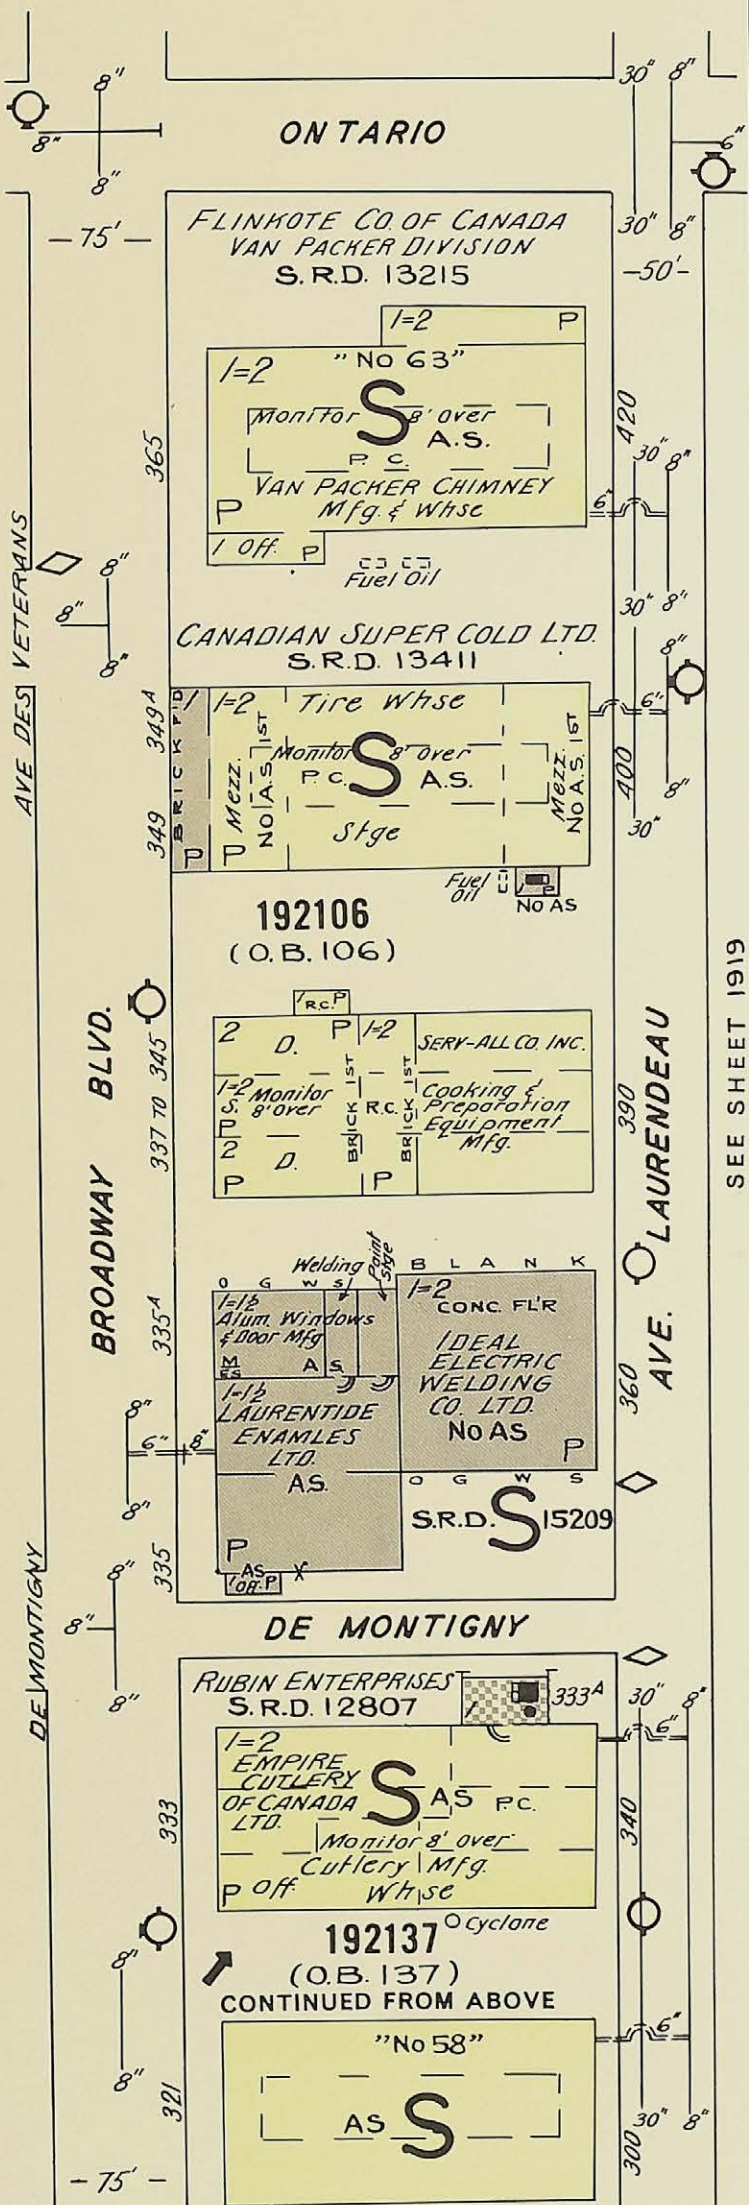 8"
8"
8"
ONTARIO
30"
8"
6"
30"
8"
—75'—
—50'—
FLINKOTE CO. OF CANADA
VAN PACKER DIVISION
S.R.D. 13215
1=2 P
1=2 "No 63"
Monitor 8' over
S
A.S.
P. C.
VAN PACKER CHIMNEY
P Mfg. & Whse
1 Off. P
Fuel Oil
365
420
30" 8"
6"
30" 8"
AVE DES VETERANS
8"
8"
8"
CANADIAN SUPER COLD LTD.
S.R.D. 13411
349A
349
1
BRICK F'D
P
1=2
Tire Whse
Mezz.
NO A.S. 1ST
Monitor 8' over
P.C. S A.S.
Stge
P
Mezz.
No A.S. 1ST
8"
6"
400
8"
30"
Fuel
Oil
1
2
No AS
192106
(O.B. 106)
BROADWAY BLVD.
337 TO 345
1 R.C. P
2 D. P
1=2
S.
P
Monitor
8' over
2 D.
P
BRICK 1ST
1=2
R.C.
P
BRICK 1ST
SERV-ALL CO. INC.
Cooking &
Preparation
Equipment
Mfg.
390
AVE. LAURENDEAU
SEE SHEET 1919
335A
O G W S
Welding
Paint
Stge
1=1½
Alum. Windows
& Door Mfg
M
ES
A S
1=1½
LAURENTIDE
ENAMLES
LTD.
A.S.
P
AS
1 Off. P
BLANK
1=2
CONC. FL'R
IDEAL
ELECTRIC
WELDING
CO. LTD.
No AS
P
O G W S
S.R.D. S 15209
360
8"
6" 8"
8"
335
DE MONTIGNY
8"
8"
8"
DE MONTIGNY
RUBIN ENTERPRISES
S.R.D. 12807
1
333A
30" 8"
6"
1=2
EMPIRE
CUTLERY
OF CANADA
LTD.
S AS P.C.
Monitor 8' over
Cutlery Mfg.
P Off. Whse
333
340
Cyclone
192137
(O.B. 137)
CONTINUED FROM ABOVE
8"
8"
"No 58"
AS S
6"
321
30" 8"
300
—75'—